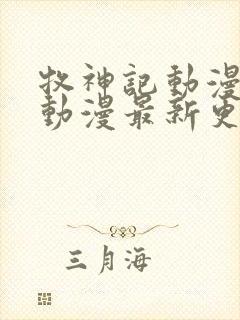 牧神記動漫
動漫最新更
三月海